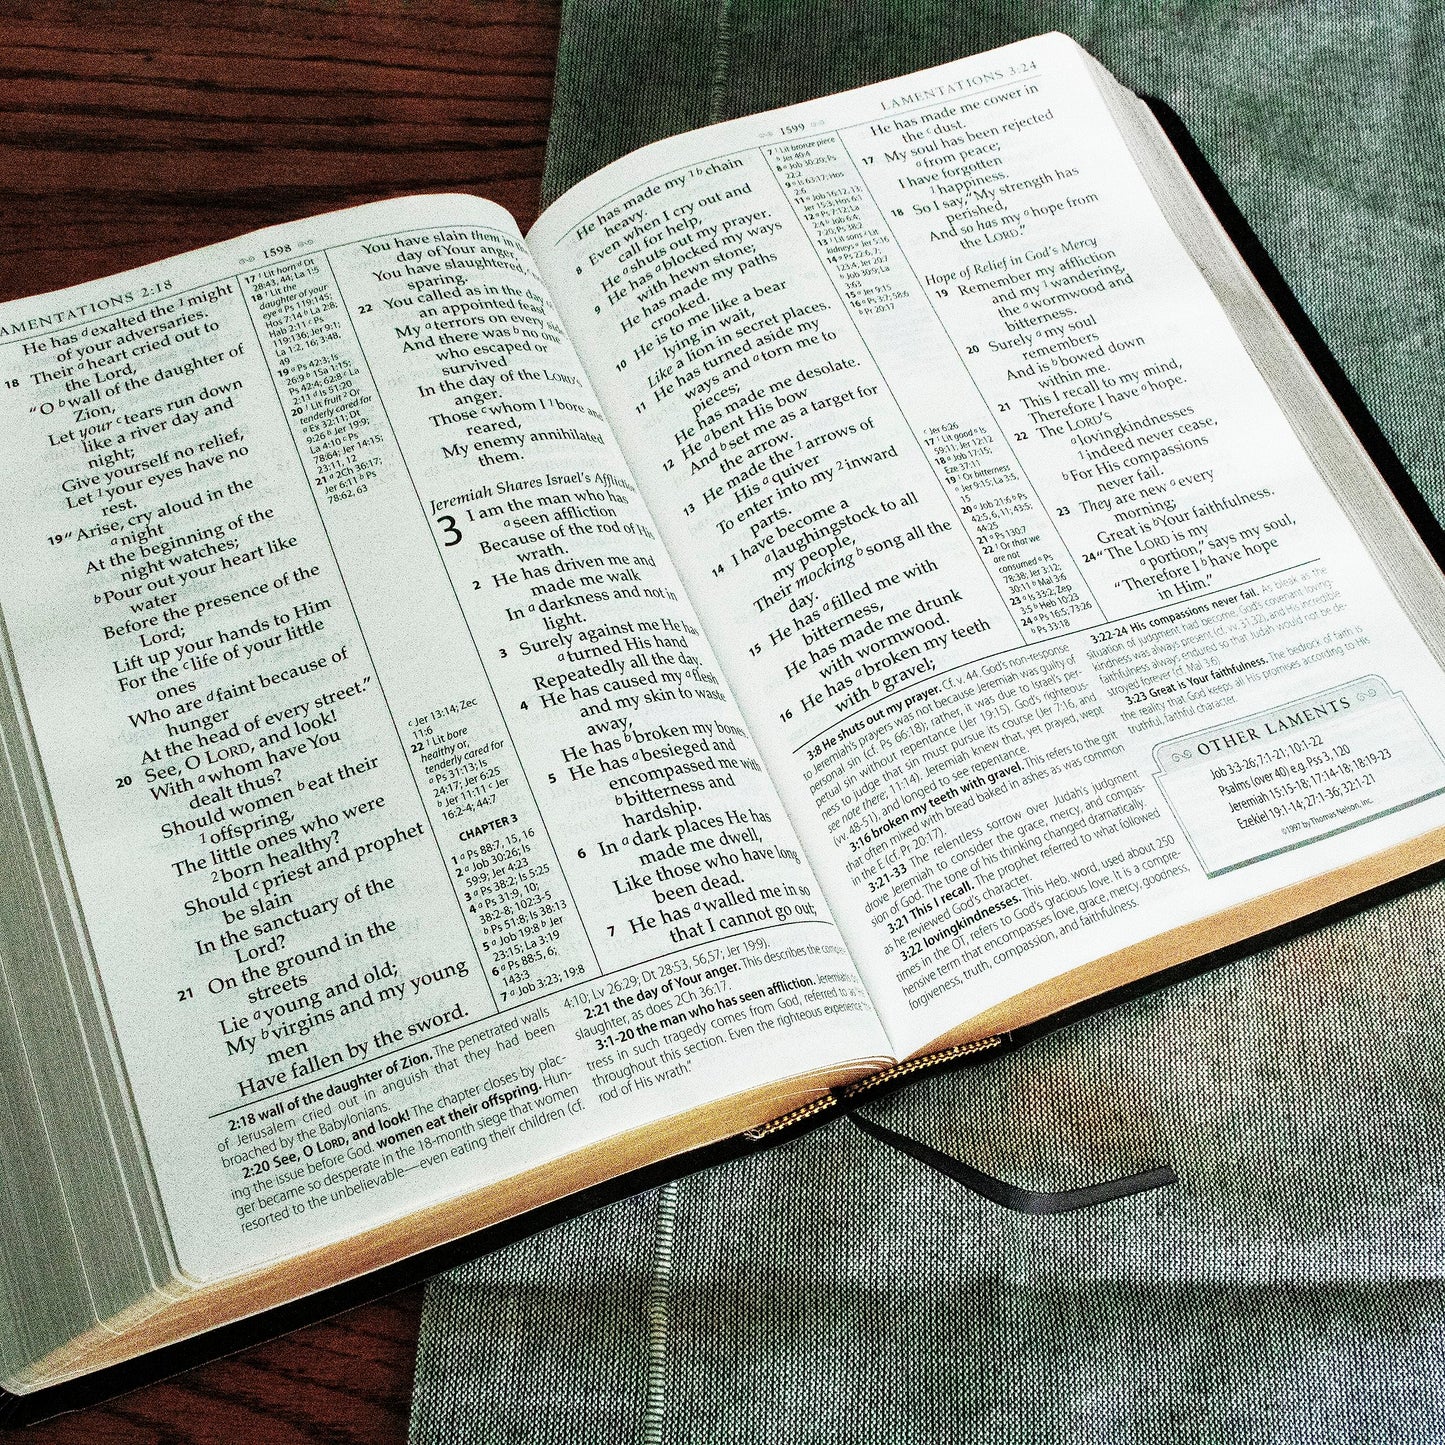 1598
LAMENTATIONS 2:18
He has d exalted the 1 might
of your adversaries.
18 Their a heart cried out to
the Lord,
"O b wall of the daughter of
Zion,
Let your c tears run down
like a river day and
night;
Give yourself no relief,
Let 1 your eyes have no
rest.
19 "Arise, cry aloud in the
a night
At the beginning of the
night watches;
b Pour out your heart like
water
Before the presence of the
Lord;
Lift up your hands to Him
For the c life of your little
ones
Who are d faint because of
hunger
At the head of every street."
20 See, O LORD, and look!
With a whom have You
dealt thus?
Should women b eat their
1 offspring,
The little ones who were
2 born healthy?
Should c priest and prophet
be slain
In the sanctuary of the
Lord?
21 On the ground in the
streets
Lie a young and old;
My b virgins and my young
men
Have fallen by the sword.
17 1 Lit horn d Dt
28:43, 44; La 1:5
18 1 Lit the
daughter of your
eye a Ps 119:145;
Hos 7:14 b La 2:8;
Hab 2:11 c Ps
119:136; Jer 9:1;
La 1:2, 16; 3:48,
49
19 a Ps 42:3; Is
26:9 b 1Sa 1:15;
Ps 42:4; 62:8 c La
2:11 d Is 51:20
20 1 Lit fruit 2 Or
tenderly cared for
a Ex 32:11; Dt
9:26 b Jer 19:9;
La 4:10 c Ps
78:64; Jer 14:15;
23:11, 12
21 a 2Ch 36:17;
Jer 6:11 b Ps
78:62, 63
c Jer 13:14; Zec
11:6
22 1 Lit bore
healthy or,
tenderly cared for
a Ps 31:13; Is
24:17; Jer 6:25
b Jer 11:11 c Jer
16:2-4; 44:7
CHAPTER 3
1 a Ps 88:7, 15, 16
2 a Job 30:26; Is
59:9; Jer 4:23
3 a Ps 38:2; Is 5:25
4 a Ps 31:9, 10;
38:2-8; 102:3-5
b Ps 51:8; Is 38:13
5 a Job 19:8 b Jer
23:15; La 3:19
6 a Ps 88:5, 6;
143:3
7 a Job 3:23; 19:8
You have slain them in
day of Your anger,
You have slaughtered,
sparing.
22 You called as in the day of
an appointed feast
My a terrors on every side;
And there was b no one
who escaped or
survived
In the day of the LORD'S
anger.
Those c whom I 1 bore and
reared,
My enemy annihilated
them.
Jeremiah Shares Israel's Affliction
3 I am the man who has
a seen affliction
Because of the rod of His
wrath.
2 He has driven me and
made me walk
In a darkness and not in
light.
3 Surely against me He has
a turned His hand
Repeatedly all the day.
4 He has caused my a flesh
and my skin to waste
away,
He has b broken my bones.
5 He has a besieged and
encompassed me with
b bitterness and
hardship.
6 In a dark places He has
made me dwell,
Like those who have long
been dead.
7 He has a walled me in so
that I cannot go out;
2:18 wall of the daughter of Zion. The penetrated walls
of Jerusalem cried out in anguish that they had been
broached by the Babylonians.
2:20 See, O LORD, and look! The chapter closes by plac-
ing the issue before God. women eat their offspring. Hun-
ger became so desperate in the 18-month siege that women
resorted to the unbelievable—even eating their children (cf.
4:10; Lv 26:29; Dt 28:53, 56,57; Jer 19:9).
2:21 the day of Your anger. This describes the
slaughter, as does 2Ch 36:17.
3:1-20 the man who has seen affliction. Jeremiah's
tress in such tragedy comes from God, referred to as
throughout this section. Even the righteous experience
rod of His wrath."
1599
LAMENTATIONS 3:24
He has made my 1 b chain
heavy.
8 Even when I cry out and
call for help,
He a shuts out my prayer.
9 He has a blocked my ways
with hewn stone;
He has made my paths
crooked.
10 He is to me like a bear
lying in wait,
Like a lion in secret places.
11 He has turned aside my
ways and a torn me to
pieces;
He has made me desolate.
12 He a bent His bow
And b set me as a target for
the arrow.
13 He made the 1 arrows of
His a quiver
To enter into my 2 inward
parts.
14 I have become a
a laughingstock to all
my people,
Their mocking b song all the
day.
15 He has a filled me with
bitterness,
He has made me drunk
with wormwood.
16 He has a broken my teeth
with b gravel;
7 1 Lit bronze piece
b Jer 40:4
8 a Job 30:20; Ps
22:2
9 a Is 63:17; Hos
2:6
11 a Job 16:12, 13;
Jer 15:3; Hos 6:1
12 a Ps 7:12; La
2:4 b Job 6:4;
7:20; Ps 38:2
13 1 Lit sons 2 Lit
kidneys a Jer 5:16
14 a Ps 22:6, 7;
123:4; Jer 20:7
b Job 30:9; La
3:63
15 a Jer 9:15
16 a Ps 3:7; 58:6
b Pr 20:17
c Jer 6:26
17 1 Lit good a Is
59:11; Jer 12:12
18 a Job 17:15;
Eze 37:11
19 1 Or bitterness
a Jer 9:15; La 3:5,
15
20 a Job 21:6 b Ps
42:5, 6, 11; 43:5;
44:25
21 a Ps 130:7
22 1 Or that we
are not
consumed a Ps
78:38; Jer 3:12;
30:11 b Mal 3:6
23 a Is 33:2; Zep
3:5 b Heb 10:23
24 a Ps 16:5; 73:26
b Ps 33:18
He has made me cower in
the c dust.
17 My soul has been rejected
a from peace;
I have forgotten
1 happiness.
18 So I say, "My strength has
perished,
And so has my a hope from
the LORD."
Hope of Relief in God's Mercy
19 Remember my affliction
and my 1 wandering,
the a wormwood and
bitterness.
20 Surely a my soul
remembers
And is b bowed down
within me.
21 This I recall to my mind,
Therefore I have a hope.
22 The LORD'S
a lovingkindnesses
1 indeed never cease,
b For His compassions
never fail.
23 They are new a every
morning;
Great is b Your faithfulness.
24 "The LORD is my
a portion," says my soul,
"Therefore I b have hope
in Him."
3:8 He shuts out my prayer. Cf. v. 44. God's non-response
to Jeremiah's prayers was not because Jeremiah was guilty of
personal sin (cf. Ps 66:18); rather, it was due to Israel's per-
petual sin without repentance (Jer 19:15). God's righteous-
ness to judge that sin must pursue its course (Jer 7:16, and
see note there; 11:14). Jeremiah knew that, yet prayed, wept
(vv. 48-51), and longed to see repentance.
3:16 broken my teeth with gravel. This refers to the grit
that often mixed with bread baked in ashes as was common
in the E (cf. Pr 20:17).
3:21-33 The relentless sorrow over Judah's judgment
drove Jeremiah to consider the grace, mercy, and compas-
sion of God. The tone of his thinking changed dramatically.
3:21 This I recall. The prophet referred to what followed
as he reviewed God's character.
3:22 lovingkindnesses. This Heb. word, used about 250
times in the OT, refers to God's gracious love. It is a compre-
hensive term that encompasses love, grace, mercy, goodness,
forgiveness, truth, compassion, and faithfulness.
3:22-24 His compassions never fail. As bleak as the
situation of judgment had become, God's covenant loving-
kindness was always present (cf. vv. 31,32), and His incredible
faithfulness always endured so that Judah would not be de-
stroyed forever (cf. Mal 3:6).
3:23 Great is Your faithfulness. The bedrock of faith is
the reality that God keeps all His promises according to His
truthful, faithful character.
OTHER LAMENTS
Job 3:3-26; 7:1-21; 10:1-22
Psalms (over 40) e.g. Pss 3, 120
Jeremiah 15:15-18; 17:14-18; 18:19-23
Ezekiel 19:1-14; 27:1-36; 32:1-21
©1997 by Thomas Nelson, Inc.